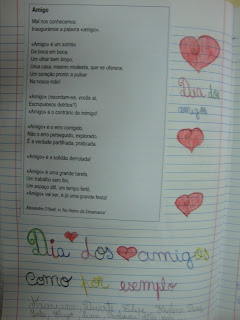 Amigo
Mal nos conhecemos
Inauguramos a palavra «amigo».
«Amigo» é um sorriso
De boca em boca,
Um olhar bem limpo,
Uma casa, mesmo modesta, que se oferece,
Um coração pronto a pulsar
Na nossa mão!
«Amigo» (recordam-se, vocês aí,
Escrupulosos detritos?)
«Amigo» é o contrário de inimigo!
«Amigo» é o erro corrigido,
Não o erro perseguido, explorado,
É a verdade partilhada, praticada.
«Amigo» é a solidão derrotada!
«Amigo» é uma grande tarefa,
Um trabalho sem fim,
Um espaço útil, um tempo fértil,
«Amigo» vai ser, é já uma grande festa!
Alexandre O'Neill, in
Dia dos
amigos
Dia dos amigos
como por exemplo